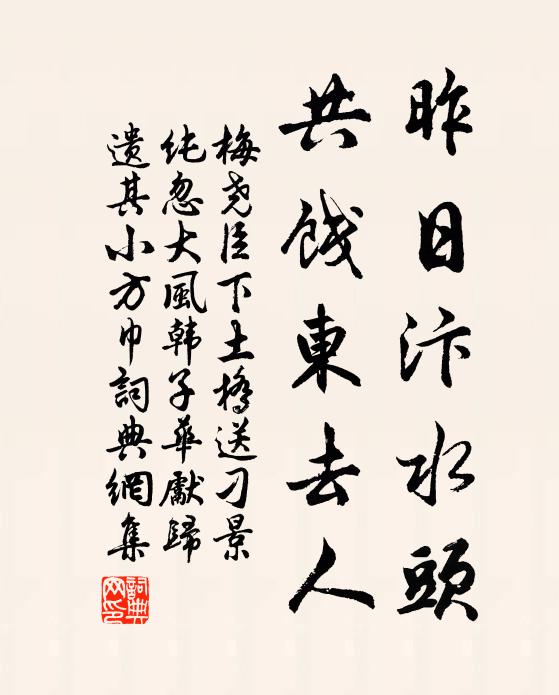 昨日汴水頭
共餞東去人
梅堯臣下土橋送刁景
純忽大風韩子華獻歸
遺其小方巾詞典網集
詞典網印